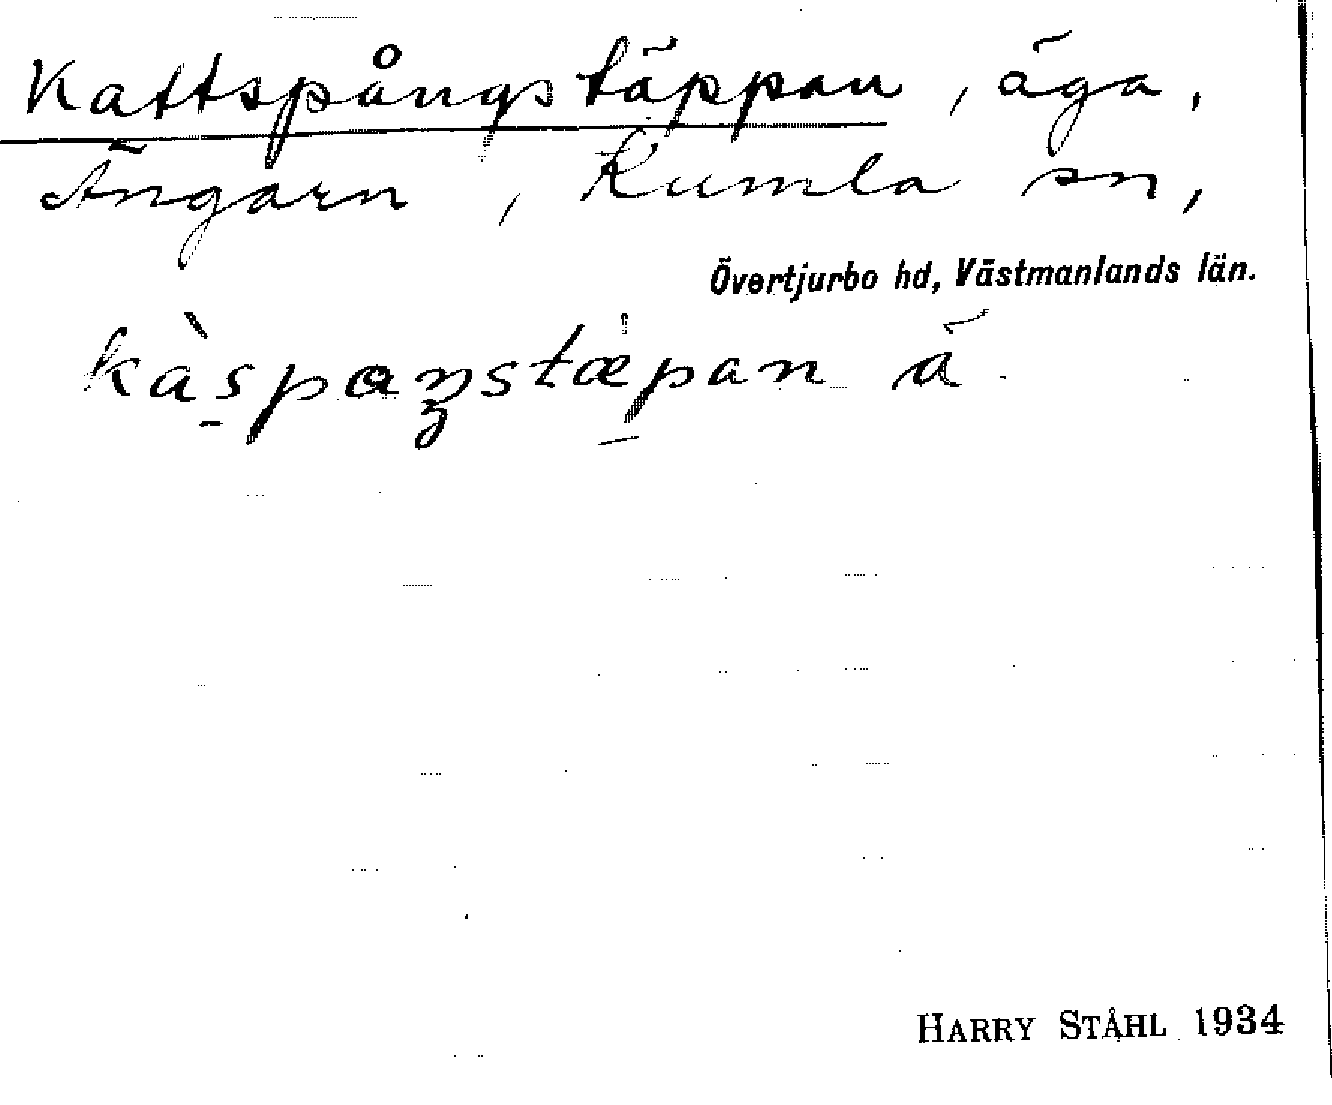 Kattspångstäppan, äga,
Ängarn, Kumla sn,
Övertjurbo hd, Västmanlands län.
kàs̠paŋstæ̀p̠an ä
HARRY STÅHL 1934